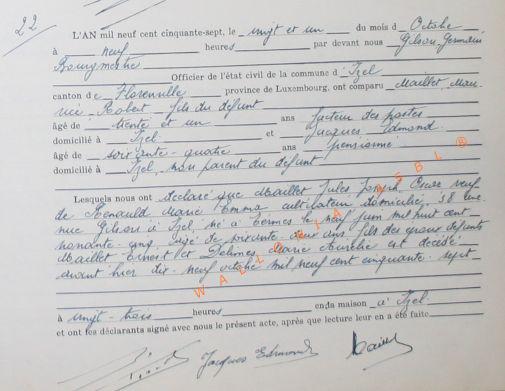 22
L'AN mil neuf cent cinquante-sept, le vingt et un du mois d'Octobre
à neuf heures par devant nous Gilson, Germain
Bourgmestre
Officier de l'état civil de la commune d'Izel
canton de Florenville province de Luxembourg, ont comparu Maillet, Mau-
rice, Robert fils du défunt
âgé de trente et un ans facteur des postes
domicilié à Izel et Jacques Edmond
âgé de soixante-quatre ans pensionné
domicilié à Izel, non parent du défunt
Lesquels nous ont déclaré que Maillet Jules Joseph, Oscar veuf
de Renauld Marie Emma cultivateur domicilié, 38
à Izel, né à Termes le neuf juin mil huit cent
nonante-cinq, âgé de soixante-deux ans fils des époux défunts
Maillet Ernest et Marie Aurélie est décédé
avant hier dix-neuf octobre mil neuf cent cinquante-sept
à vingt-trois heures en da maison à Izel.
et ont les déclarants signé avec nous le présent acte, après que lecture leur en a été faite
Jacques Edmond
WALLONIA ASBL ®